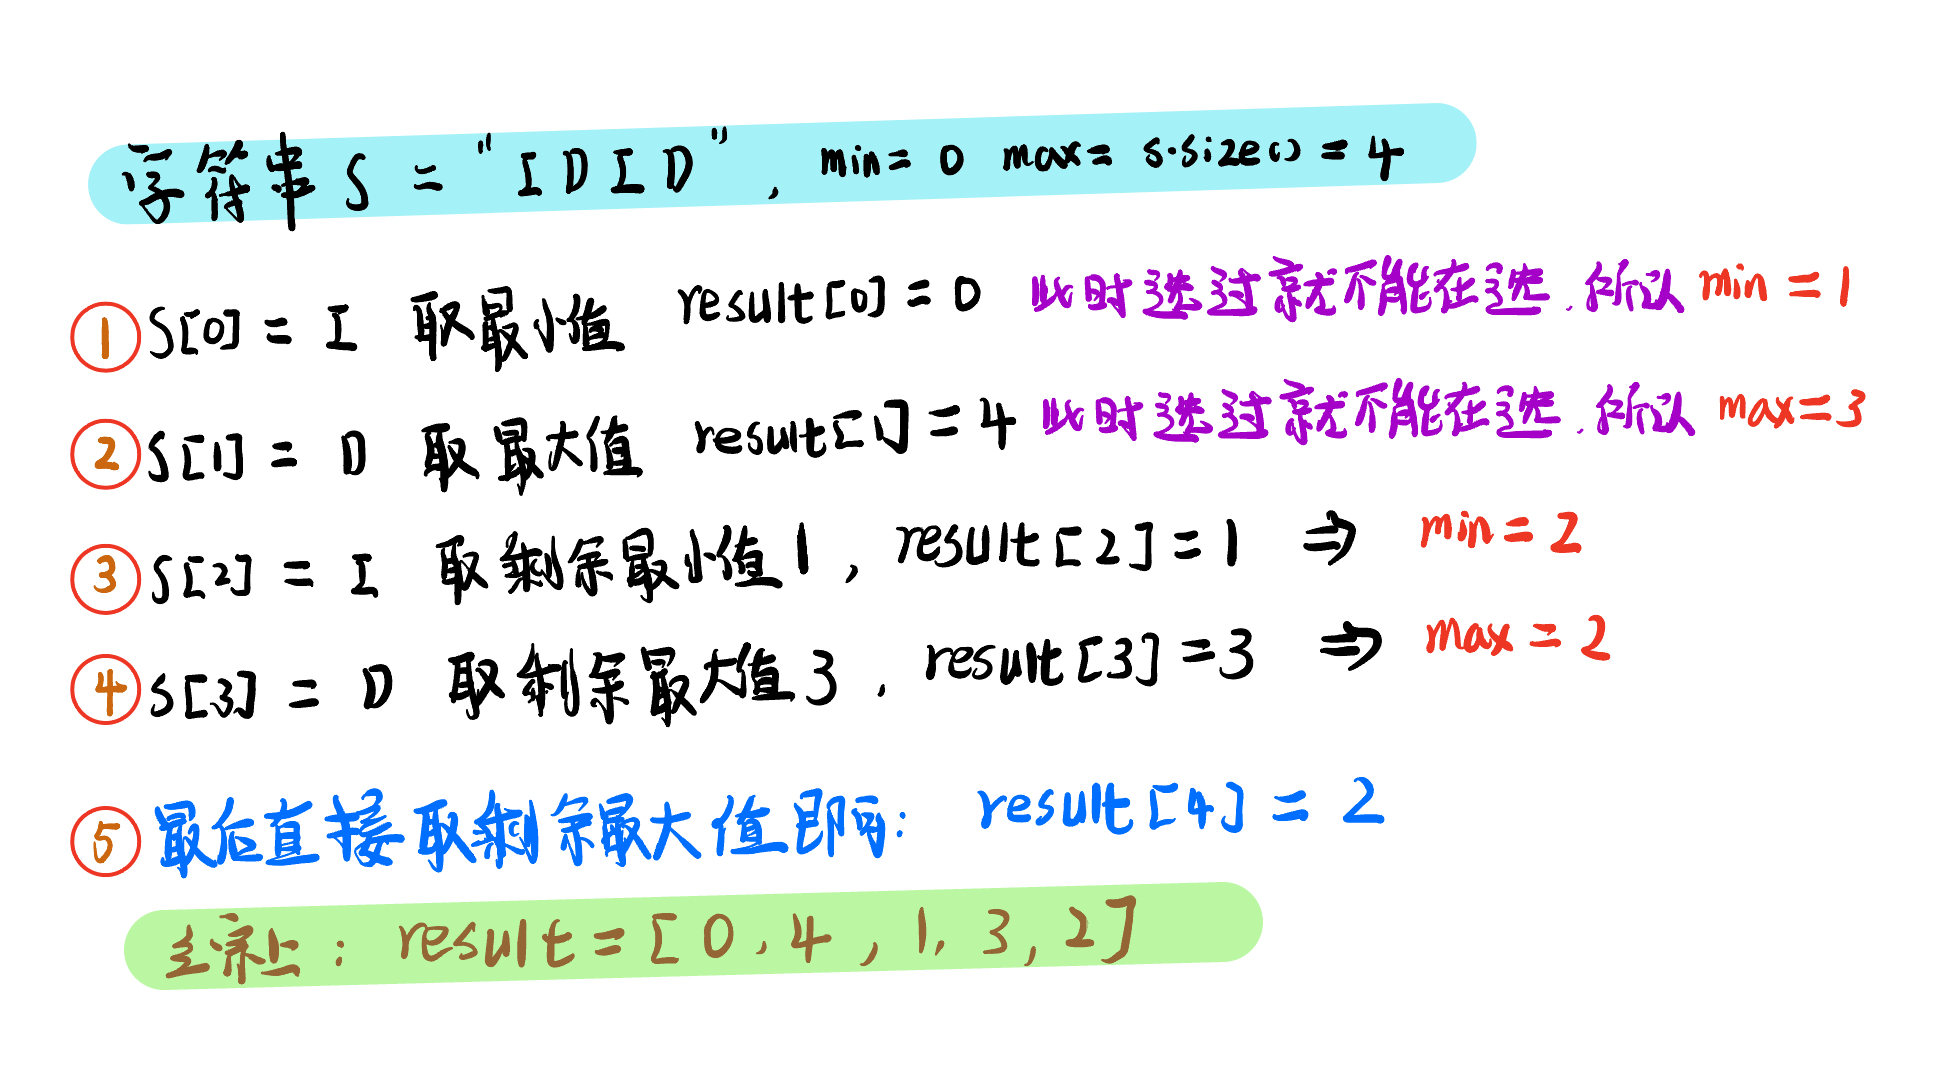 字符串 S = "IDID", min = 0 max = s.size() = 4
① S[0] = I 取最小值 result[0] = 0 此时选过就不能在选,所以 min = 1
② S[1] = D 取最大值 result[1] = 4 此时选过就不能在选,所以 max=3
③ S[2] = I 取剩余最小值1, result[2] = 1 ⇒ min = 2
④ S[3] = D 取剩余最大值3, result[3] = 3 ⇒ max = 2
⑤ 最后直接取剩余最大值即可: result[4] = 2
综上: result = [0, 4, 1, 3, 2]